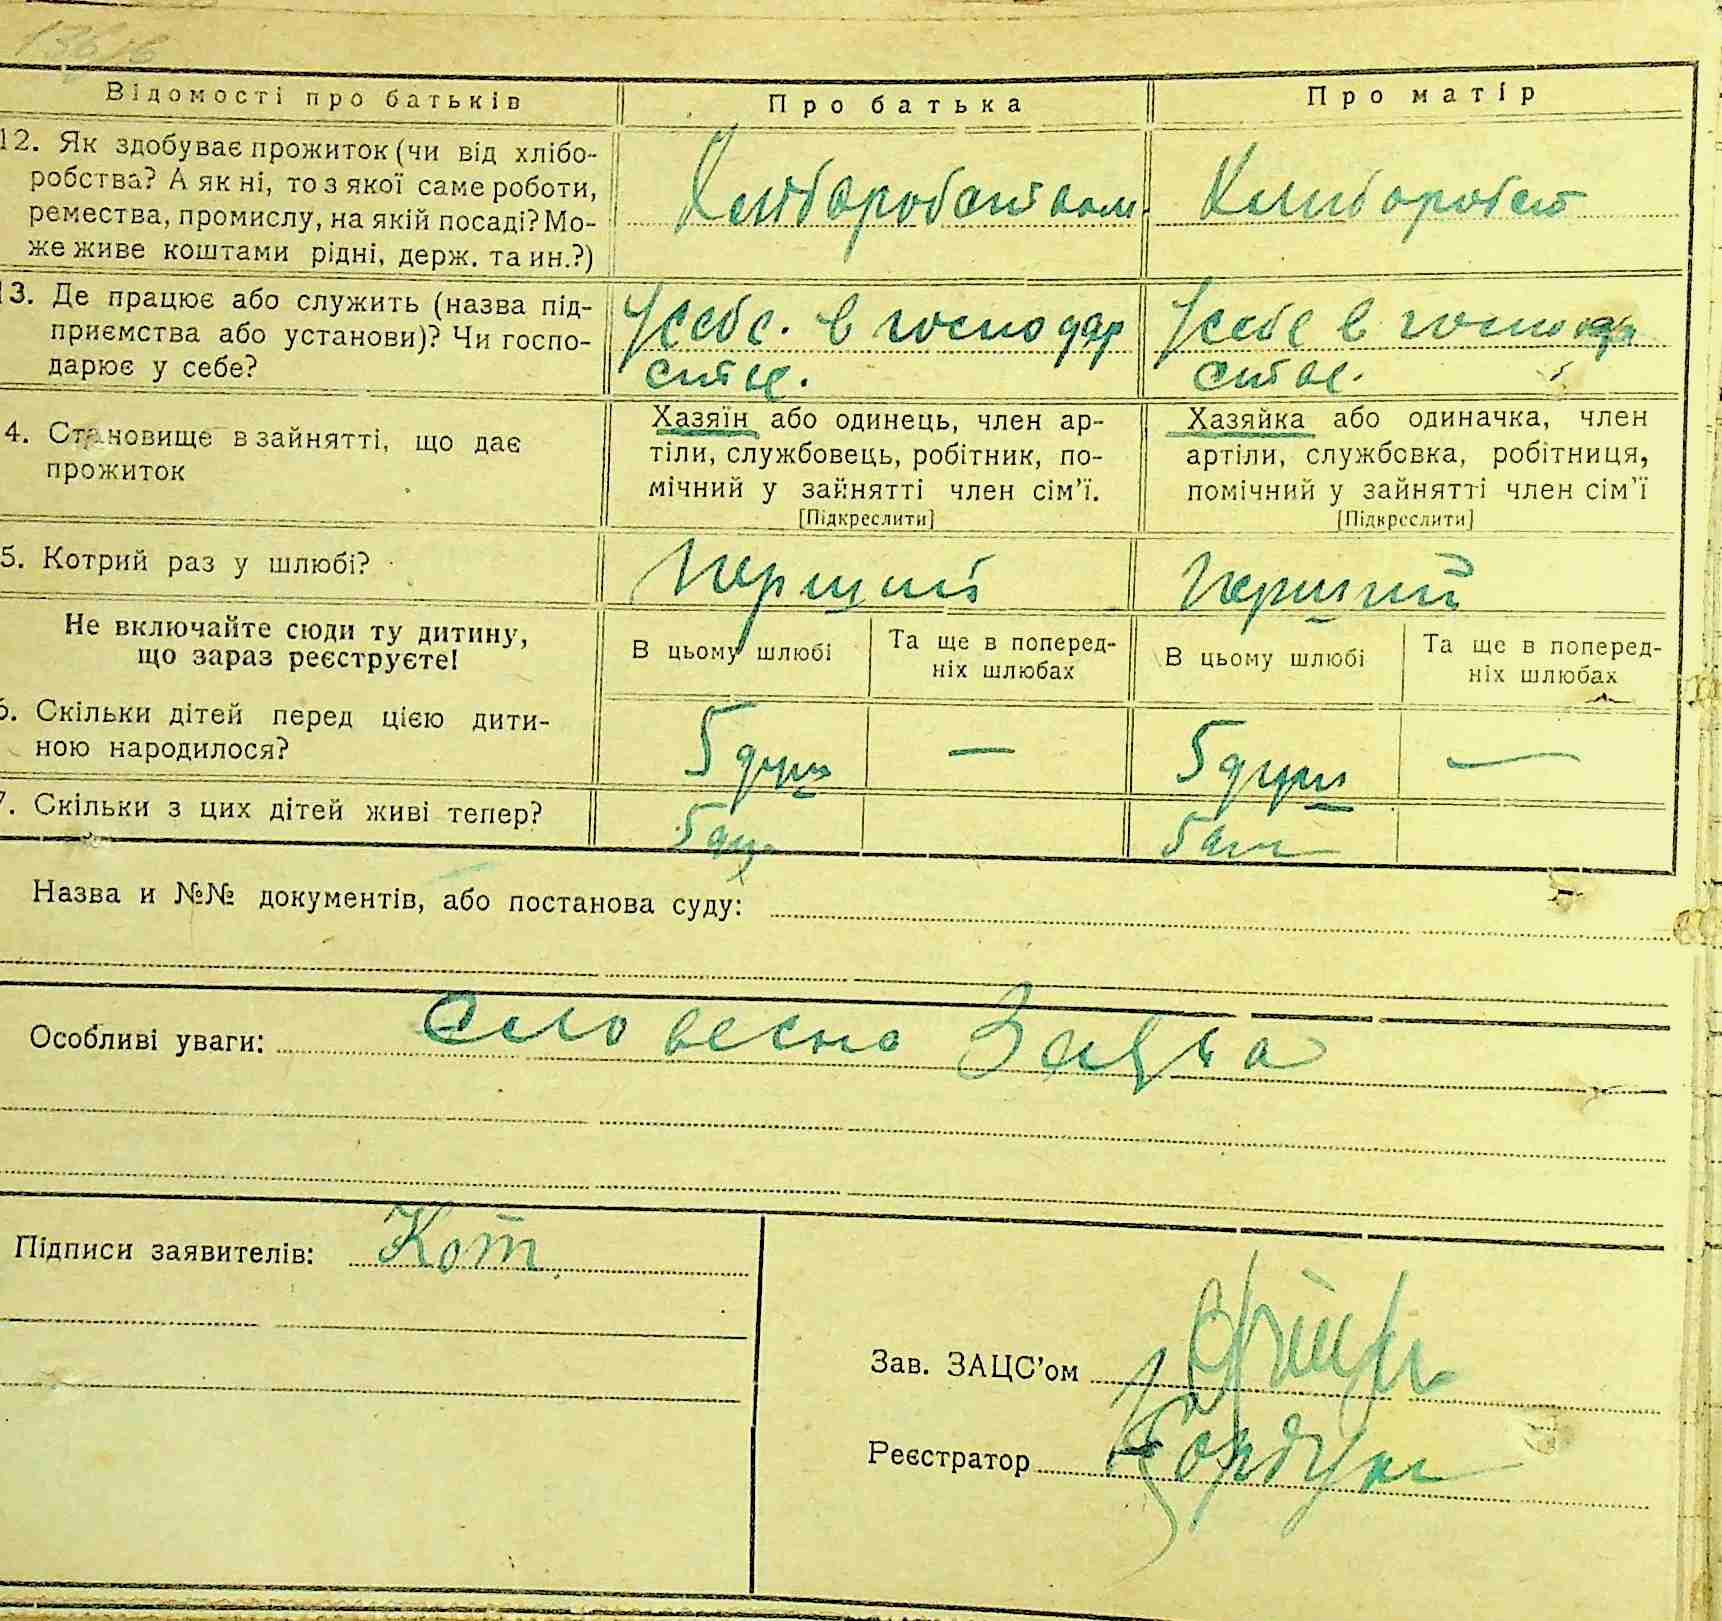 Відомості про батьків
Про батька
Про матір
12. Як здобуває прожиток (чи від хлібо-
робства? А як ні, то з якої саме роботи,
ремества, промислу, на якій посаді? Мо-
же живе коштами рідні, держ. та ин.?)
Хліборобством
Хлибороб
13. Де працює або служить (назва під-
приємства або установи)? Чи госпо-
дарює у себе?
У себе. в господар
стве.
У себе в господар
стве.
4. Становище в зайнятті, що дає
прожиток
Хазяїн або одинець, член ар-
тіли, службовець, робітник, по-
мічний у зайнятті член сім'ї.
[Підкреслити]
Хазяйка або одиначка, член
артіли, службовка, робітниця,
помічний у зайнятті член сім'ї
[Підкреслити]
5. Котрий раз у шлюбі?
перший
перший
Не включайте сюди ту дитину,
що зараз реєструєте!
В цьому шлюбі
Та ще в поперед-
ніх шлюбах
В цьому шлюбі
Та ще в поперед-
ніх шлюбах
6. Скільки дітей перед цією дити-
ною народилося?
5 душ
—
5 душ
—
7. Скільки з цих дітей живі тепер?
5 душ
5
Назва и №№ документів, або постанова суду:
Особливі уваги: Словесно Заява
Підписи заявителів: Кот
Зав. ЗАЦС'ом
Реєстратор